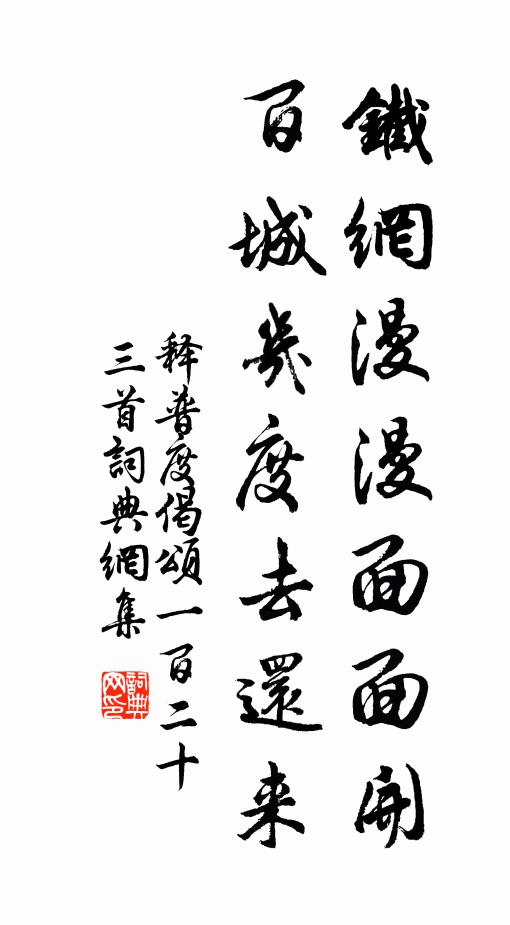 鐵網漫漫面面開
百城幾度去還来
释普度偈頌一百二十
三首詞典網集
詞典網印